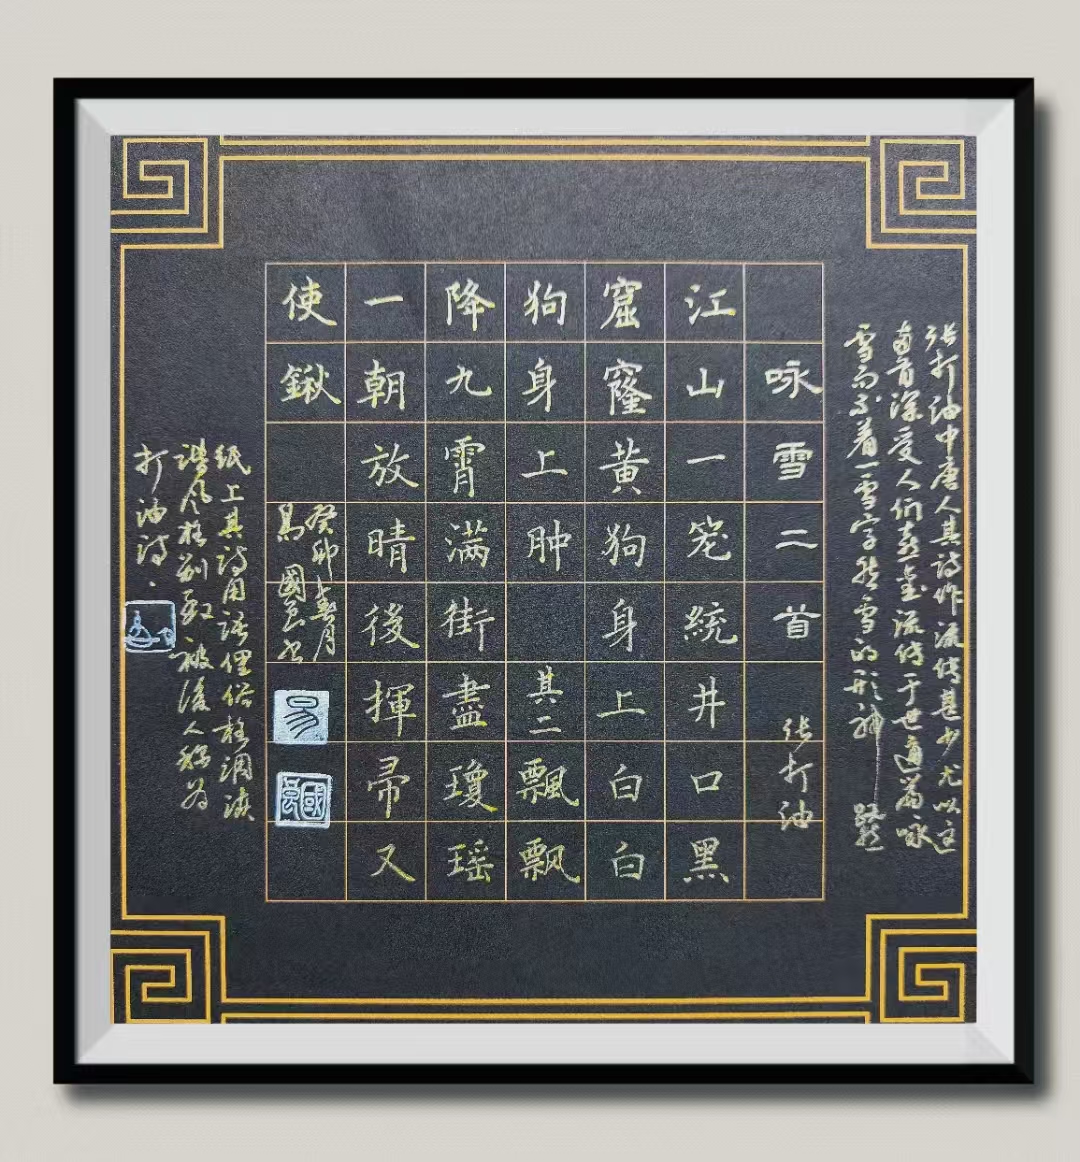 张打油中唐人其诗作流传甚少尤以这
两首深受人们喜爱流传于世通篇咏
雪而不着一雪字然雪的形神——跃然
咏雪二首 张打油
江山一笼統井口黑
窟窿黄狗身上白白
狗身上肿 其二 飄飘
降九霄满街盡瓊瑶
一朝放晴後揮帚又
使鍬
癸卯春月
易國书
易
國
纸上其诗用语俚俗格调诙
谐风格别致被後人称为
打油诗.